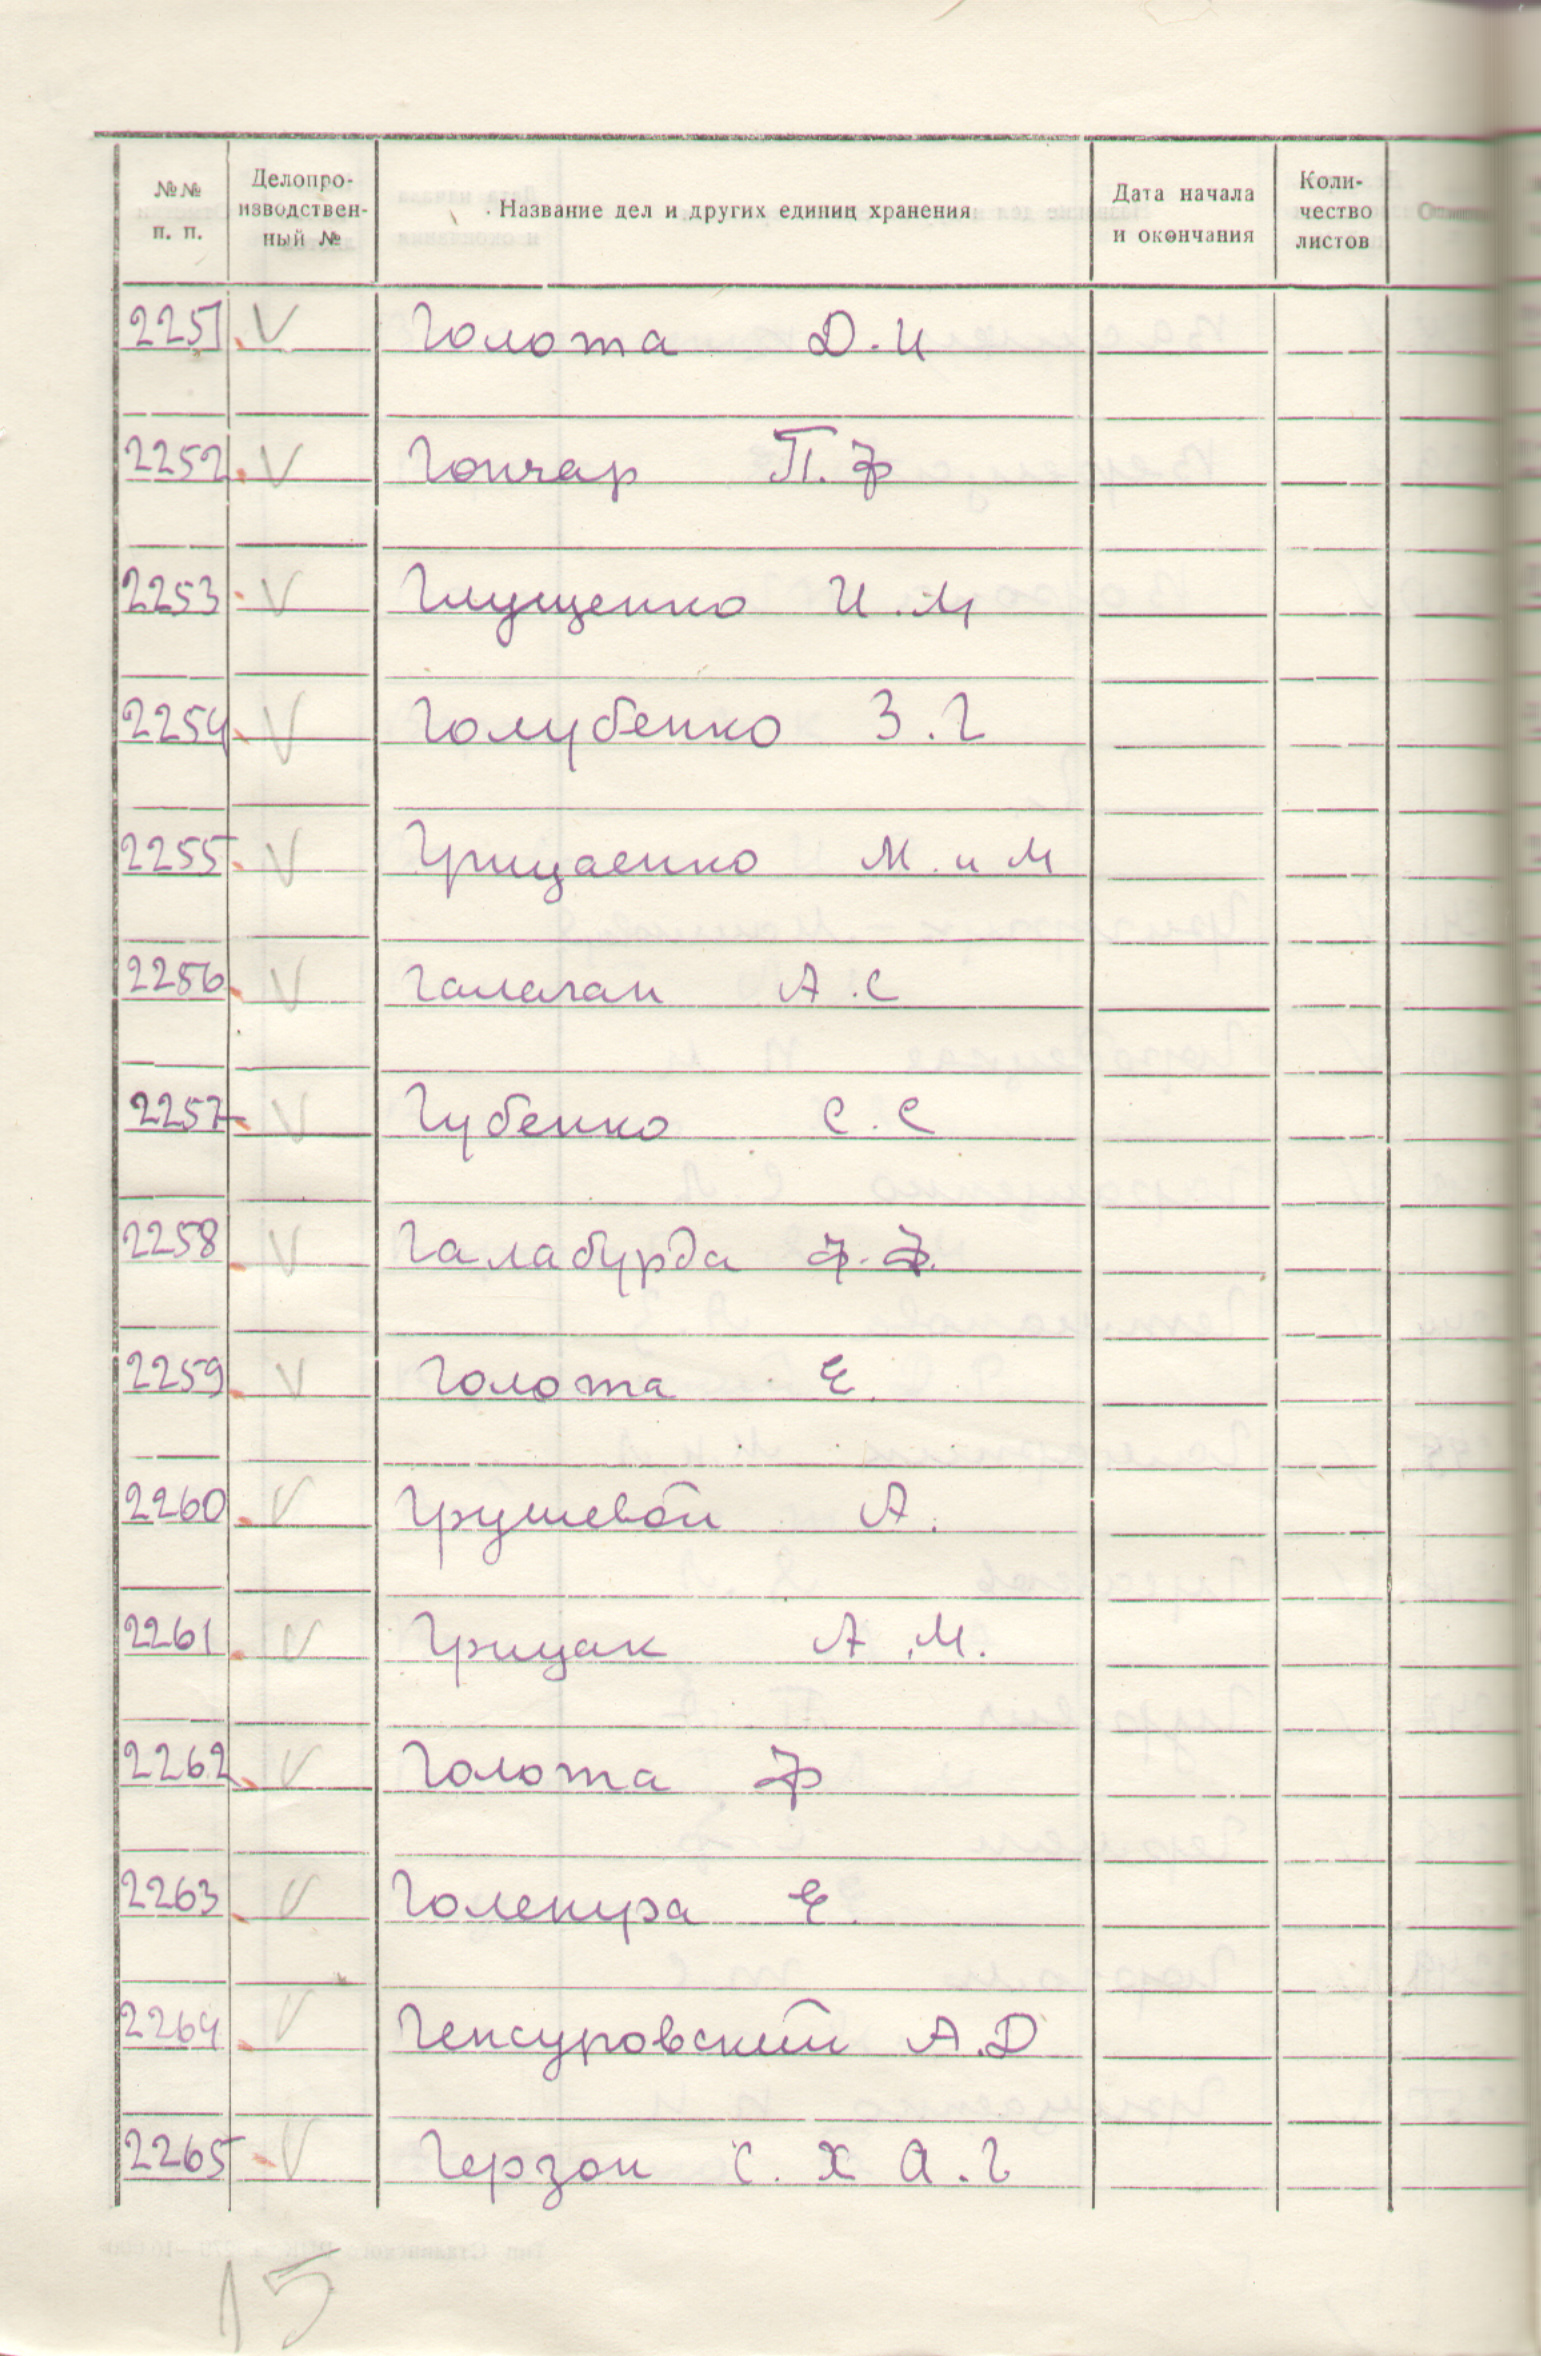 №№ п. п. Делопро- изводствен- ный № Название дел и других единиц хранения Дата начала и окончания Коли- чество листов
2251. V Голота Д.И
2252. V Гончар П.Ф
2253. V Глущенко И.М
2254. V Голубенко З.Г
2255. V Грицаенко М. и М
2256. V Галаган А.С
2257. V Губенко С.С
2258. V Галабурда Ф.Ф.
2259. V Голота Е.
2260. V Грушевой А.
2261. V Грицак А.М.
2262. V Голота Ф
2263. V Голенура Е.
2264. V Генсуровский А.Д
2265. V Герзон С. Х А.Г
15